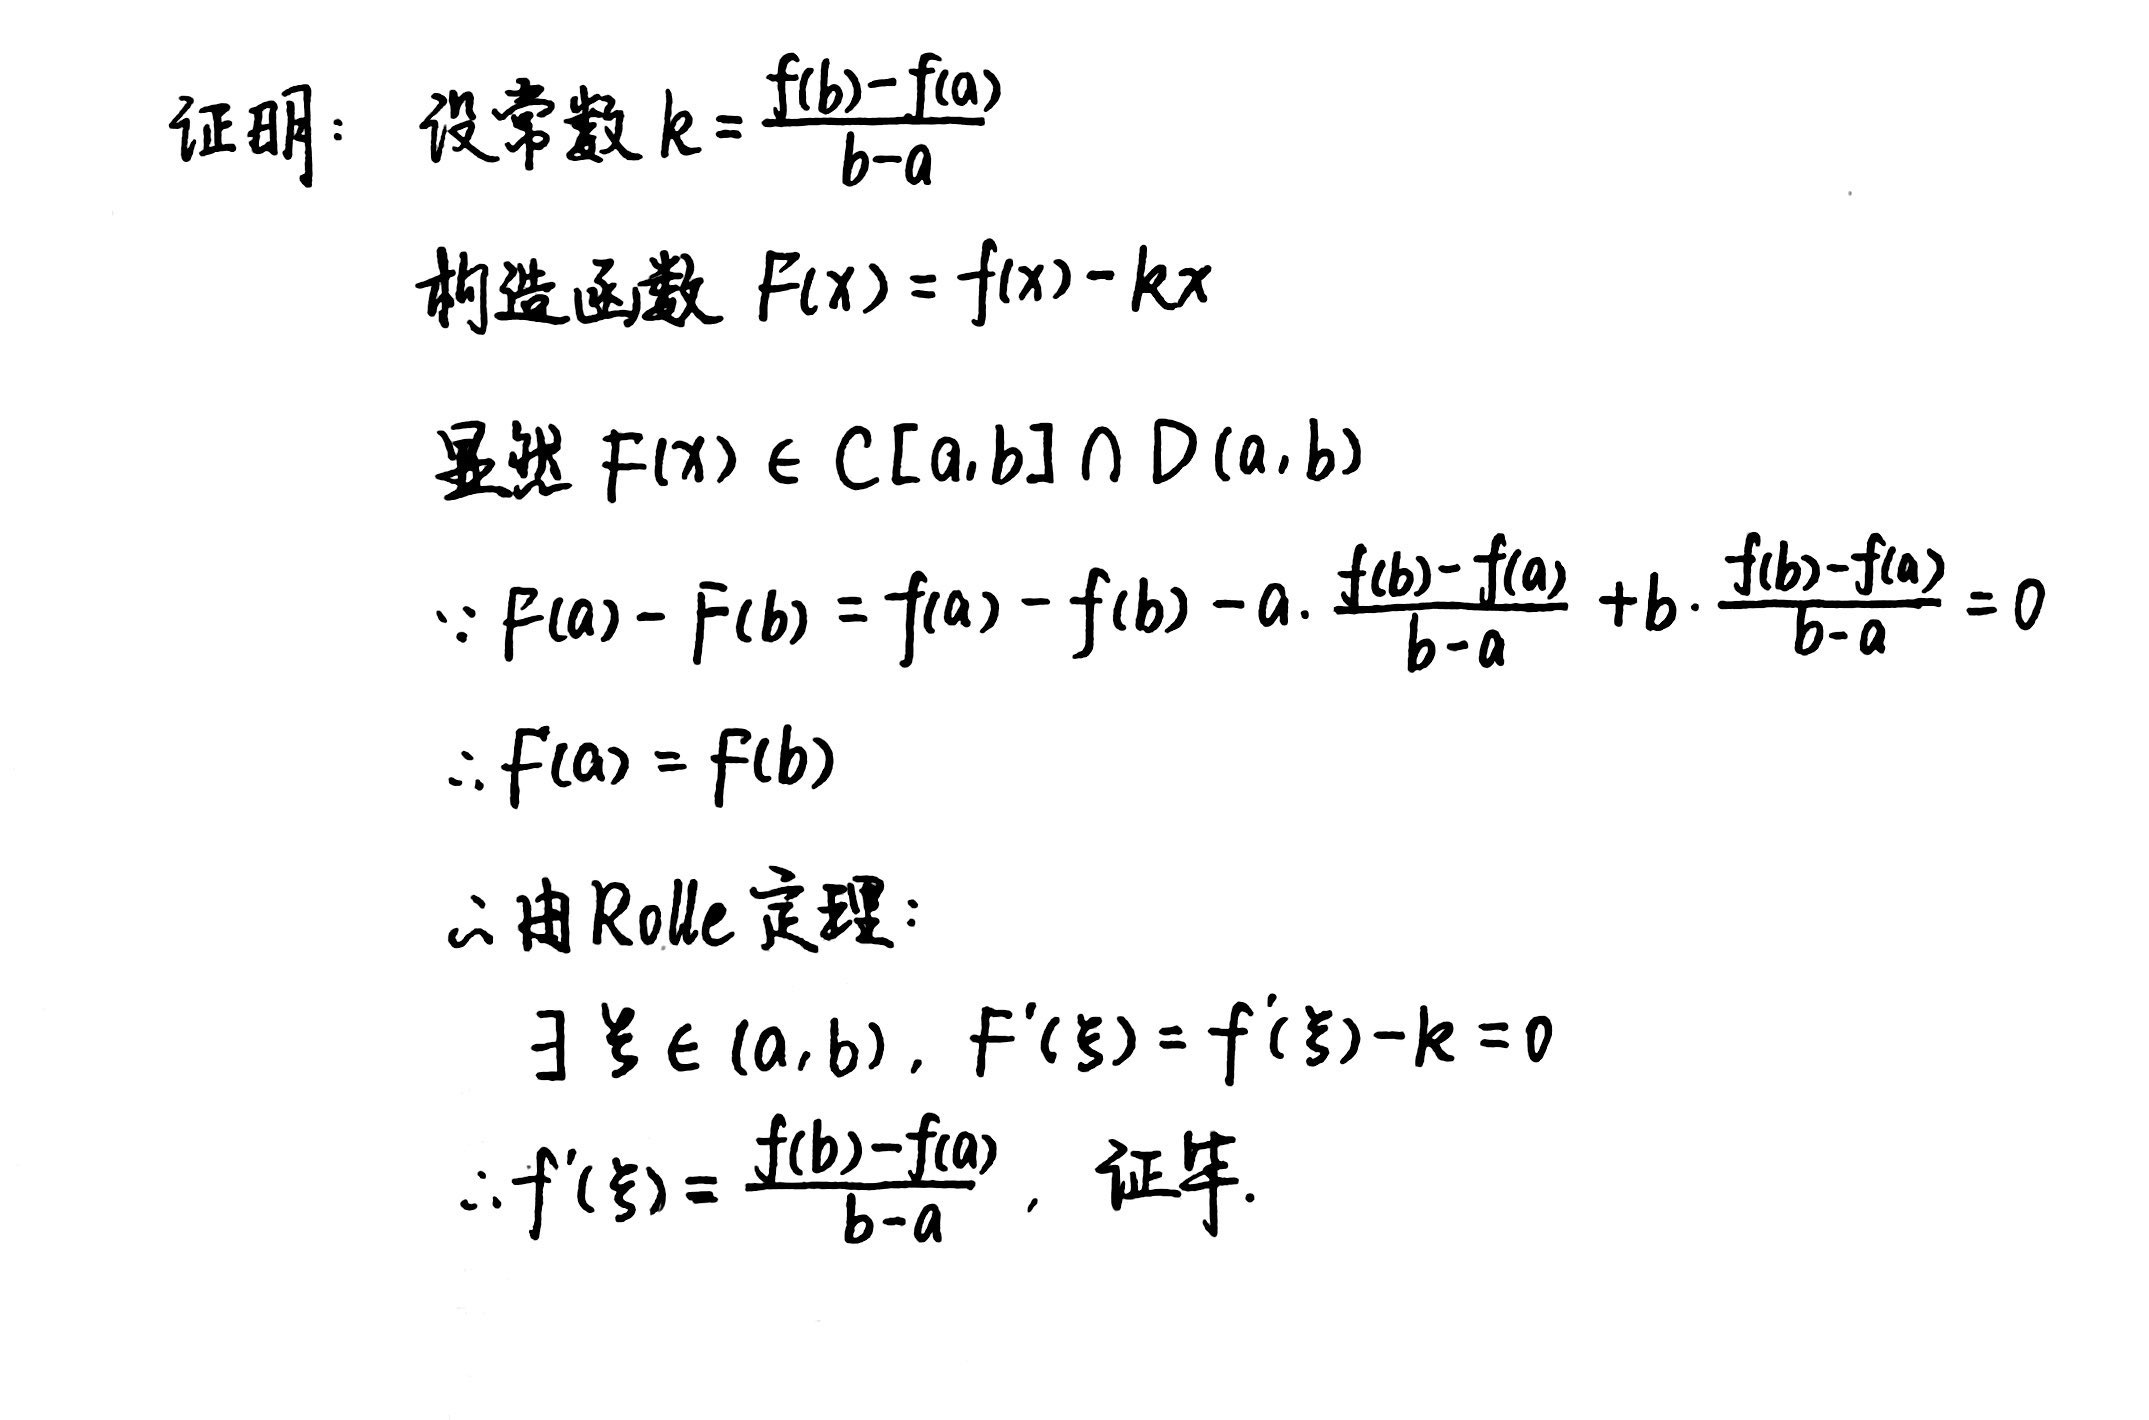 证明: 设常数 k = \frac{f(b)-f(a)}{b-a}
构造函数 F(x) = f(x) - kx
显然 F(x) ∈ C[a,b] ∩ D(a,b)
∵ F(a) - F(b) = f(a) - f(b) - a·\frac{f(b)-f(a)}{b-a} + b·\frac{f(b)-f(a)}{b-a} = 0
∴ F(a) = F(b)
∴ 由Rolle定理:
∃ ξ ∈ (a,b), F'(ξ) = f'(ξ) - k = 0
∴ f'(ξ) = \frac{f(b)-f(a)}{b-a}, 证毕.